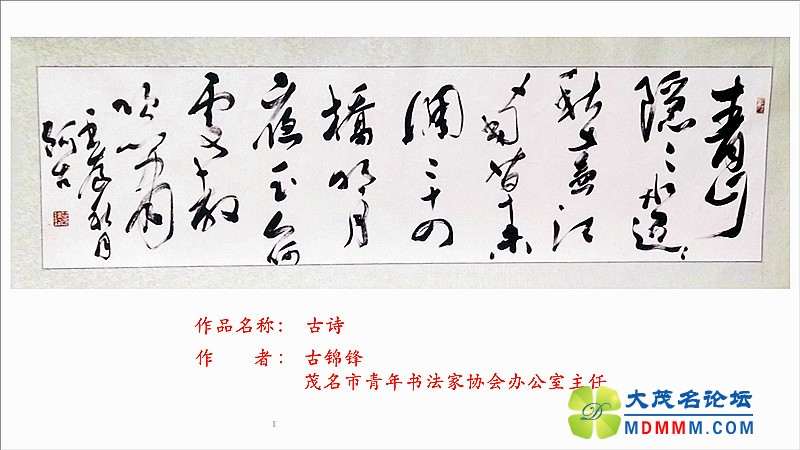 青山
隐〻水迢〻
秋盡江
南草未
凋二十四
橋明月
夜玉人何
處教
吹簫
秋月
阿古
作品名称： 古诗
作 者： 古锦锋
茂名市青年书法家协会办公室主任
大茂名论坛
MDMMM.COM